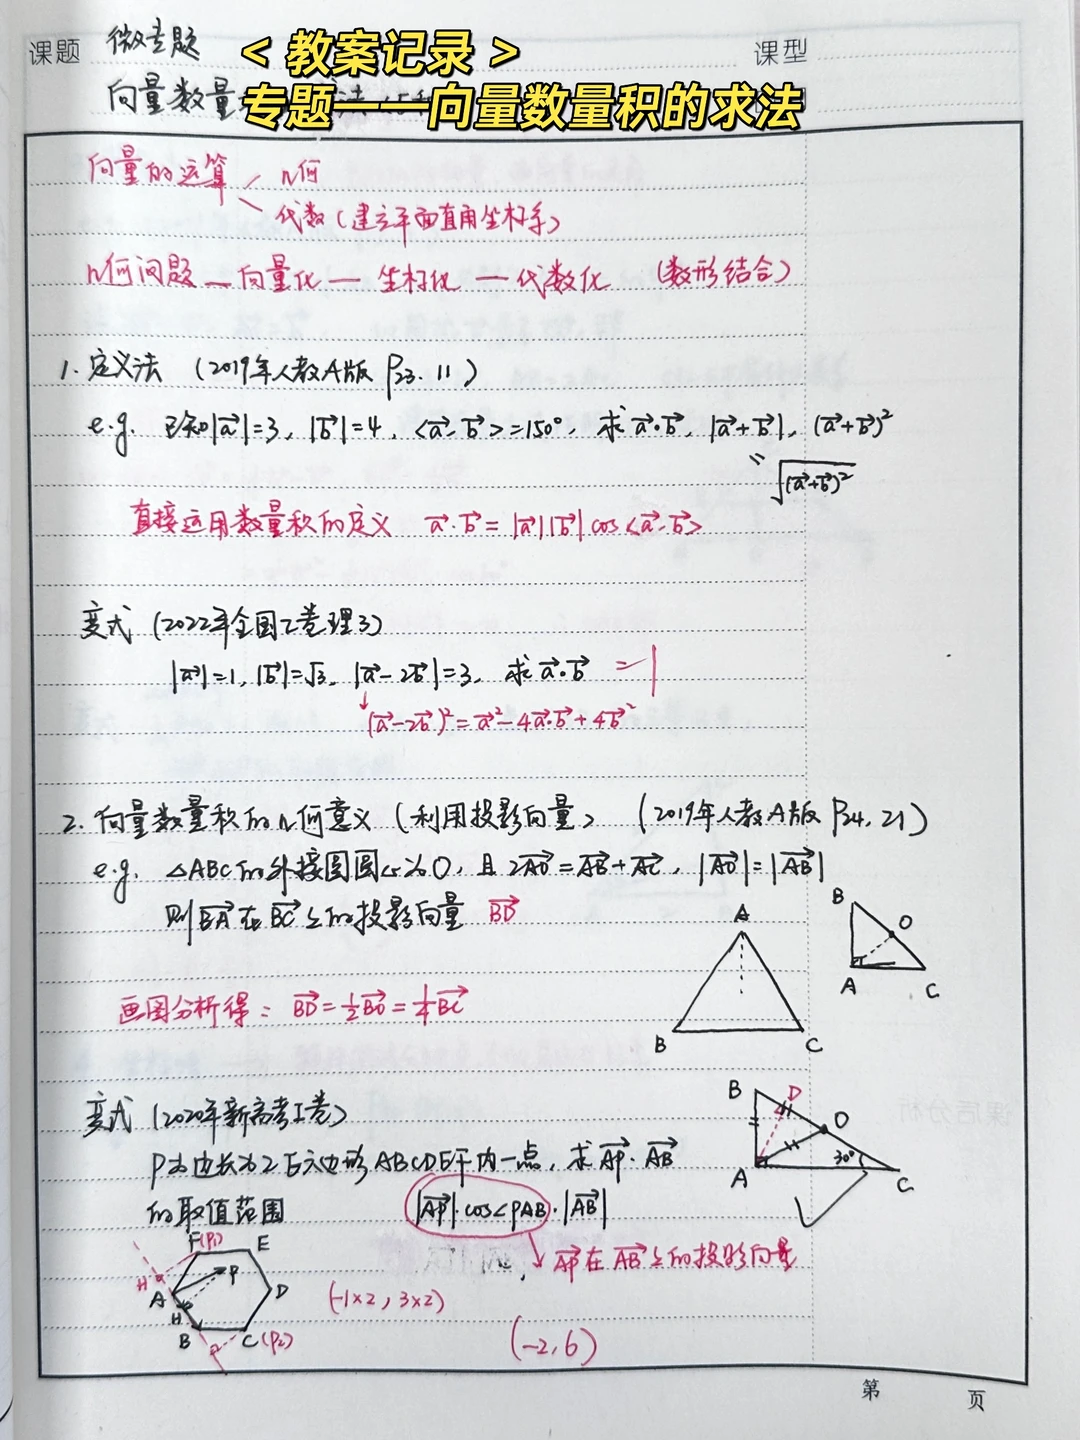 课题 微专题
< 教案记录 >
课型
向量数量
专题——向量数量积的求法
向量的运算 几何
代数（建立平面直角坐标系）
几何问题 — 向量化 — 坐标化 — 代数化 （数形结合）
1. 定义法 （2019年人教A版 P23. 11）
e.g. 已知|a→|=3, |b→|=4, <a→·b→>=150°, 求a→·b→, |a→+b→|, (a→+b→)²
" √(a→+b→)²
直接运用数量积的定义 a→·b→=|a→||b→|cos<a→·b→>
变式（2022年全国乙卷理3）
|a→|=1, |b→|=√3, |a→-2b→|=3, 求a→·b→ =1
↓(a→-2b→)²=a→²-4a→·b→+4b→²
2. 向量数量积的几何意义（利用投影向量） （2019年人教A版 P24, 21）
e.g. △ABC的外接圆圆心为O, 且2AO→=AB→+AC→, |AO→|=|AB→|
则BA→在BC→上的投影向量 BD→
A
B C
B O
A C
画图分析得： BD→=½BO→=¼BC→
变式（2020年新高考I卷）
P为边长为2正六边形ABCDEF内一点, 求AP→·AB→
的取值范围 |AP→|·cos<PAB·|AB→|
AP→在AB→上的投影向量
B D O
A 30° C
F(P1) E
H A P D
H
B C(P2)
(-1×2, 3×2)
(-2,6)
课后分析
第 页